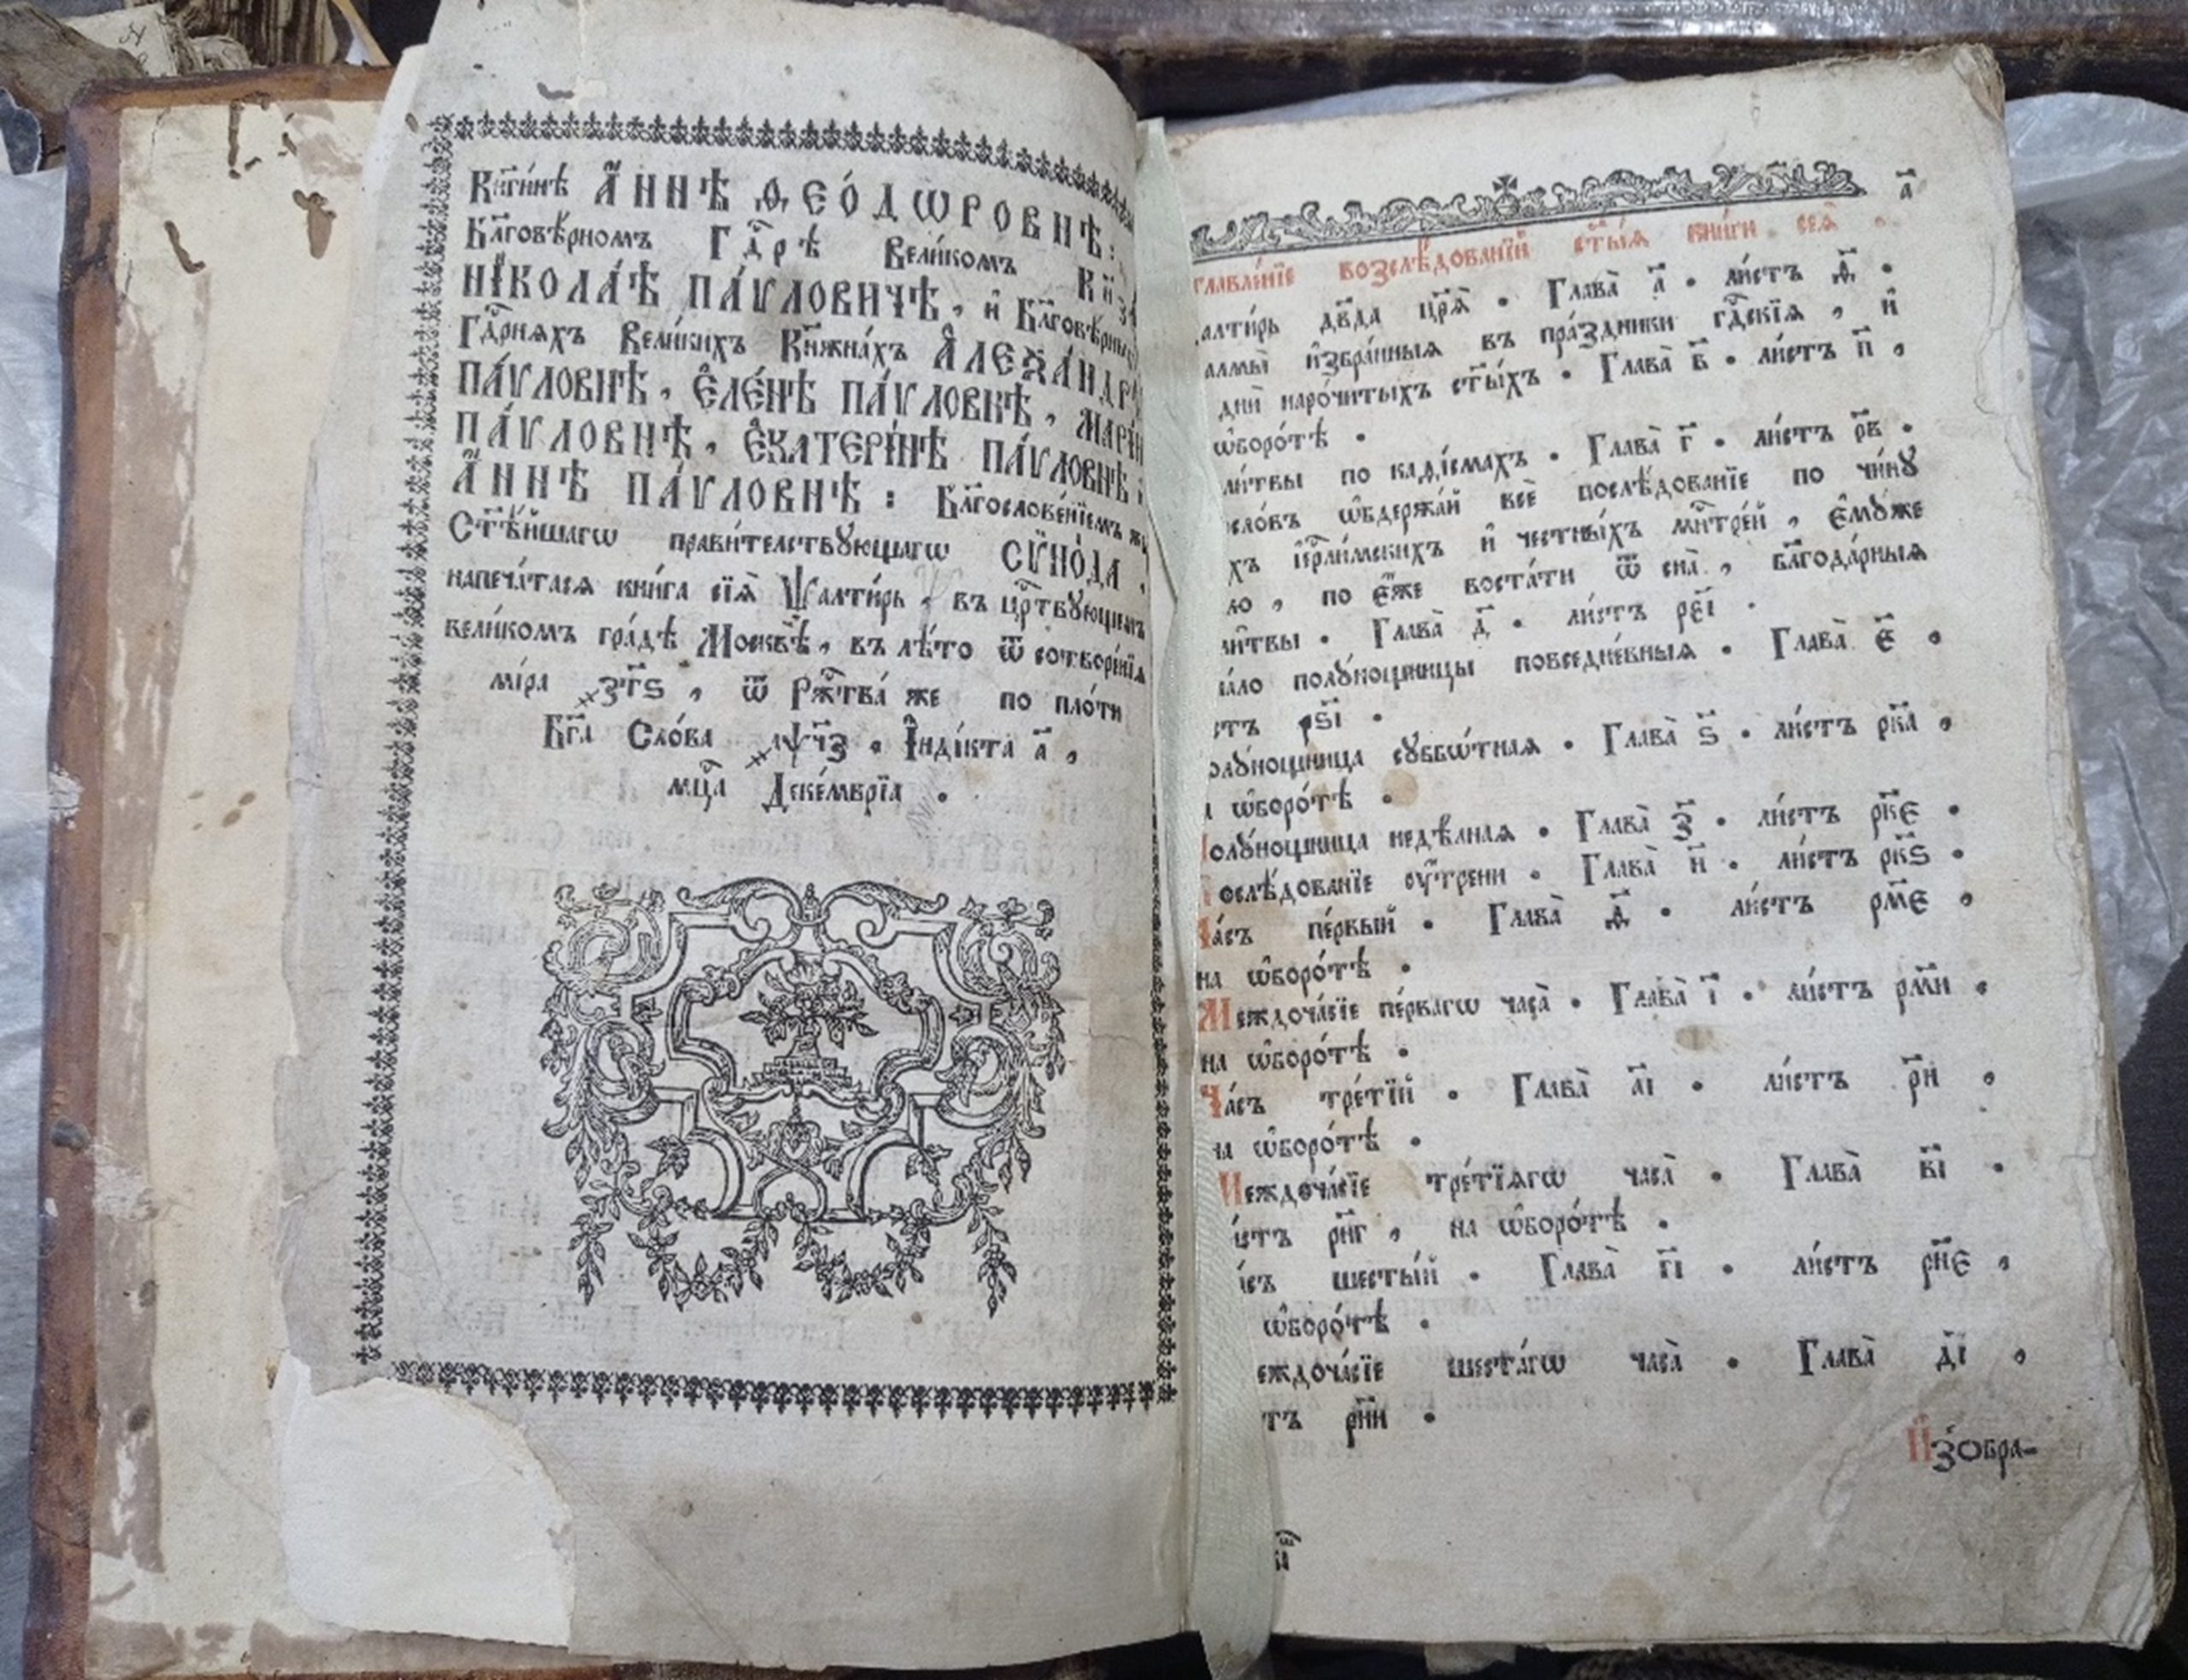 Кн҃ги́нѣ А҆́ннѣ Ѳео́дѡровнѣ:
Бл҃говѣ́рномъ Гдⷭ҇рѣ Вели́комъ
Нїкола́ѣ Па́ѵловичѣ, и҆ Бл҃говѣ́рных
Гдⷭ҇рняхъ Вели́кихъ Кн҃жна́хъ А҆леѯа́ндр
Па́ѵловнѣ, Е҆ле́нѣ Па́ѵловнѣ, Марі́и
Па́ѵловнѣ, Е҆катері́нѣ Па́ѵловнѣ и҆
А҆́ннѣ Па́ѵловнѣ: Бл҃гослове́нїемъ же
Ст҃ѣ́йшагѡ прави́телствꙋющагѡ Сѷно́да,
напеча́тася кни́га сїѧ̀ Ѱалти́рь, въ црⷭ҇твꙋющемъ
вели́комъ гра́дѣ Москвѣ̀, въ лѣ́то ѿ сотворе́нїѧ
мі́ра ҂зт҃ѕ, ѿ Ржⷭ҇тва́ же по пло́ти
Бг҃а Сло́ва ҂аѱч҃з. І҆нді́кта а҃,
мцⷭ҇а Деке́мврїа.
а҃
главле́нїе возслѣ́дованїй ст҃ы́ѧ кни́ги сеѧ̀.
алти́рь дв҃да цр҃ѧ̀. Глава̀ а҃. ли́стъ ѳ҃.
алмы̀ и҆збра́нныѧ въ пра́здники гдⷭ҇скїѧ, и҆
дни̑ наро́читыхъ ст҃ы́хъ. Глава̀ в҃. ли́стъ п҃,
ѡ҆боро́тѣ.
ли́твы по каѳі́смахъ. Глава̀ г҃. ли́стъ рв҃.
сло́въ ѡ҆бдержа́й всѐ послѣ́дованїе по чи́нꙋ
хъ і҆ерⷭ҇ли́мскихъ и҆ честны́хъ мн҃тре́й, є҆мꙋ́же
ло, по є҆́же воста́ти ѿ сна̀, бл҃года́рныѧ
мл҃твы. Глава̀ д҃. ли́стъ рє҃і.
ча́ло полꙋ́нощницы повседне́вныѧ. Глава̀ є҃.
стъ рѕ҃і.
олꙋ́нощница сꙋббѡ́тнаѧ. Глава̀ ѕ҃. ли́стъ рк҃а,
а ѡ҆боро́тѣ.
Полꙋ́нощница недѣ́лнаѧ. Глава̀ з҃. ли́стъ рк҃є.
Послѣ́дованїе оу҆́трени. Глава̀ и҃. ли́стъ рк҃ѕ.
Ча́съ пе́рвый. Глава̀ ѳ҃. ли́стъ рм҃є.
на ѡ҆боро́тѣ.
Междоча́сїе пе́рвагѡ часа̀. Глава̀ і҃. ли́стъ рм҃и.
на ѡ҆боро́тѣ.
Ча́съ тре́тїй. Глава̀ а҃і. ли́стъ рн҃.
на ѡ҆боро́тѣ.
Междоча́сїе тре́тїѧгѡ часа̀. Глава̀ в҃і.
и́стъ рн҃г, на ѡ҆боро́тѣ.
а́съ шесты́й. Глава̀ г҃і. ли́стъ рн҃є,
ѡ҆боро́тѣ.
еждоча́сїе шеста́гѡ часа̀. Глава̀ д҃і,
тъ рн҃и.
И҆зобра-